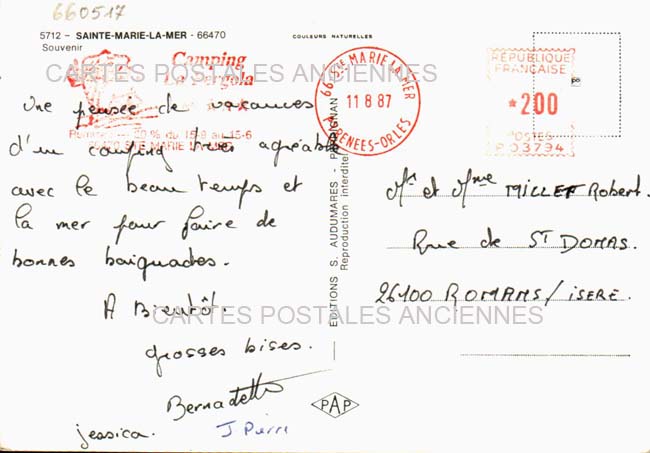 660517
5712 - SAINTE-MARIE-LA-MER - 66470
Souvenir
COULEURS NATURELLES
Camping
La Pergola
66 STE MARIE LA MER
11 8 87
PYRENEES-ORLES
REPUBLIQUE
FRANÇAISE
*2.00
POSTES
P.03794
CARTES POSTALES ANCIENNES
Une pensée de vacances
d'un camping très agréable
avec le beau temps et
la mer pour faire de
bonnes baignades.
A Bientôt.
grosses bises.
Bernadette
jessica. J Pierre
EDITIONS S. AUDUMARES - PERPIGNAN
Reproduction interdite
Mr et Mme MILLET Robert.
Rue de ST DOMAS.
26100 ROMANS/ISERE.
CARTES POSTALES ANCIENNES
PAP